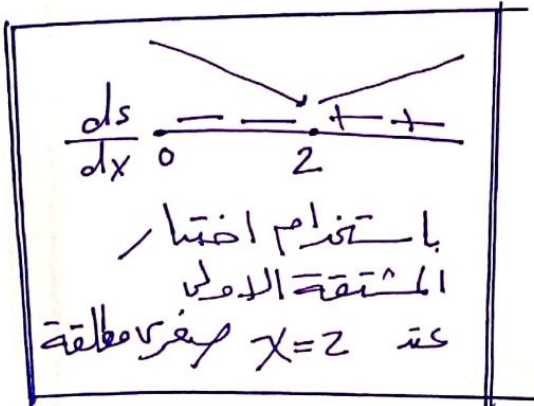 ds/dx − − + +
0 2
باستخدام اختبار
المشتقة الاولى
عند x=2 صغرى مطلقة